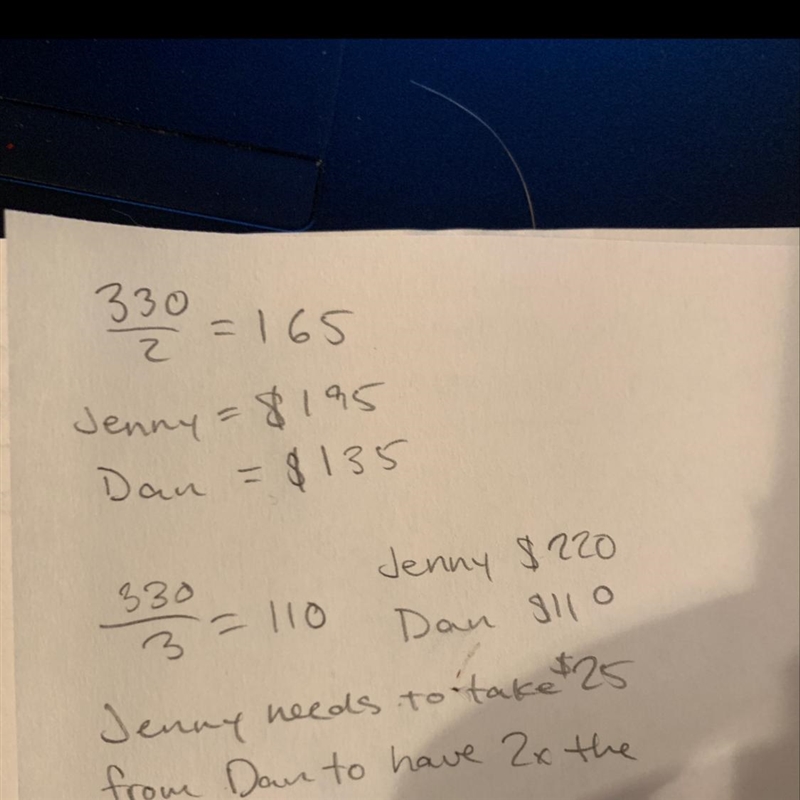 330
2 = 165
Jenny = $195
Dan = $135
330
3 = 110
Jenny $220
Dan $110
Jenny needs to take $25
from Dan to have 2x the